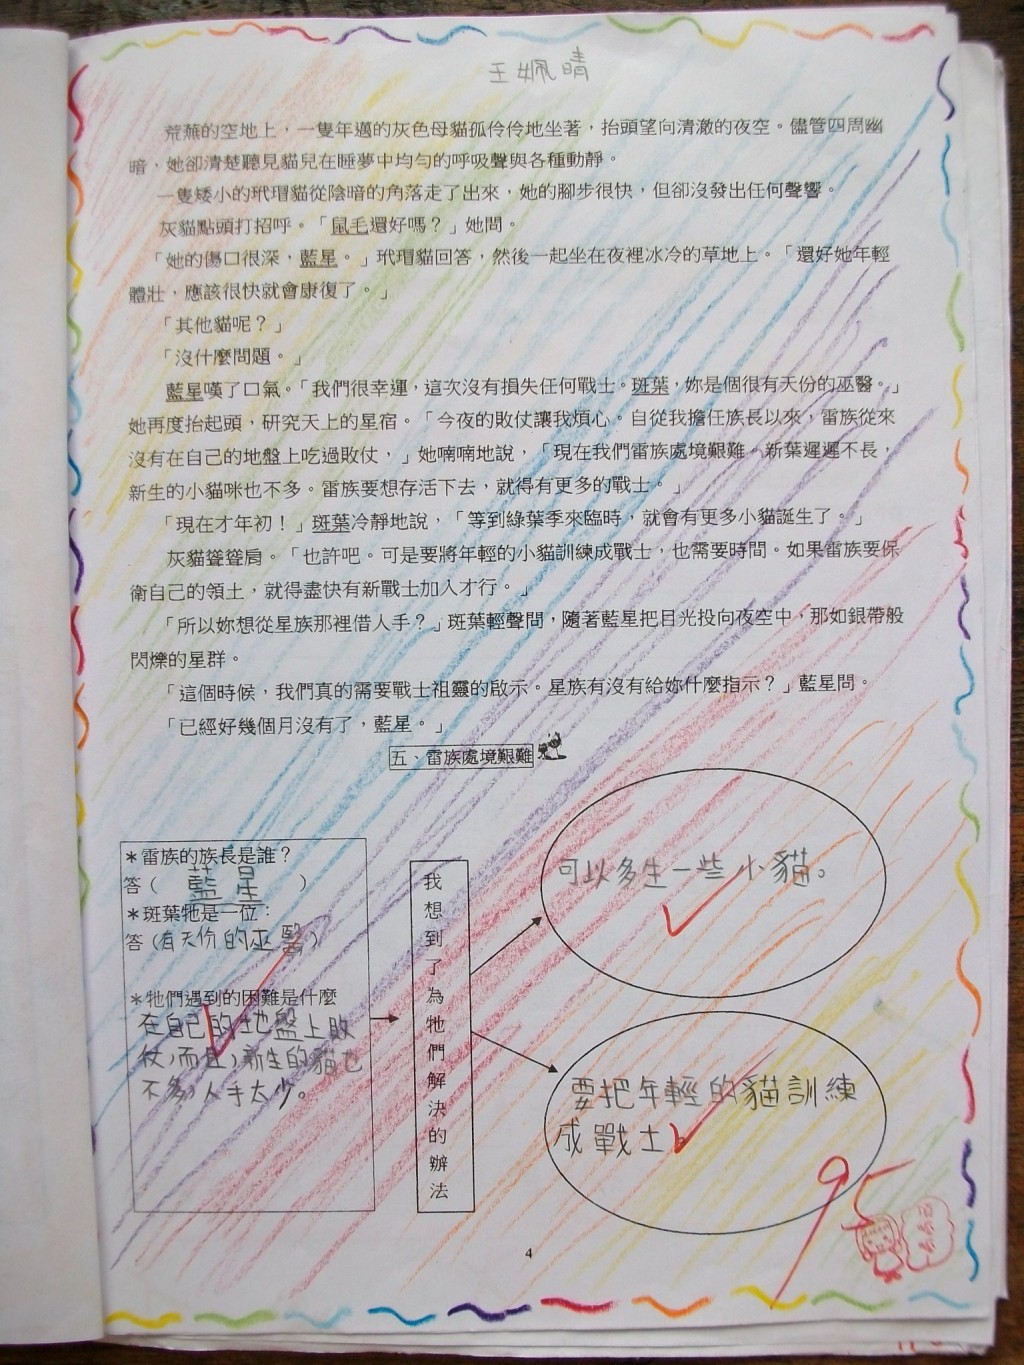 王姵晴
荒蕪的空地上，一隻年邁的灰色母貓孤伶伶地坐著，抬頭望向清澈的夜空。儘管四周幽
暗，她卻清楚聽見貓兒在睡夢中均勻的呼吸聲與各種動靜。
一隻矮小的玳瑁貓從陰暗的角落走了出來，她的腳步很快，但卻沒發出任何聲響。
灰貓點頭打招呼。「鼠毛還好嗎？」她問。
「她的傷口很深，藍星。」玳瑁貓回答，然後一起坐在夜裡冰冷的草地上。「還好她年輕
體壯，應該很快就會康復了。」
「其他貓呢？」
「沒什麼問題。」
藍星嘆了口氣。「我們很幸運，這次沒有損失任何戰士。斑葉，妳是個很有天份的巫醫。」
她再度抬起頭，研究天上的星宿。「今夜的敗仗讓我煩心。自從我擔任族長以來，雷族從來
沒有在自己的地盤上吃過敗仗，」她喃喃地說，「現在我們雷族處境艱難。新葉遲遲不長，
新生的小貓咪也不多。雷族要想存活下去，就得有更多的戰士。」
「現在才年初！」斑葉冷靜地說，「等到綠葉季來臨時，就會有更多小貓誕生了。」
灰貓聳聳肩。「也許吧。可是要將年輕的小貓訓練成戰士，也需要時間。如果雷族要保
衛自己的領土，就得盡快有新戰士加入才行。」
「所以妳想從星族那裡借人手？」斑葉輕聲問，隨著藍星把目光投向夜空中，那如銀帶般
閃爍的星群。
「這個時候，我們真的需要戰士祖靈的啟示。星族有沒有給妳什麼指示？」藍星問。
「已經好幾個月沒有了，藍星。」
五、雷族處境艱難
＊雷族的族長是誰？
答（藍星）
＊斑葉牠是一位：
答（有天份的巫醫）
＊牠們遇到的困難是什麼
在自己的地盤上敗
仗，而且，新生的貓也
不多，人手太少。
我想到了為牠們解決的辦法
可以多生一些小貓。
要把年輕的貓訓練
成戰士
95
4